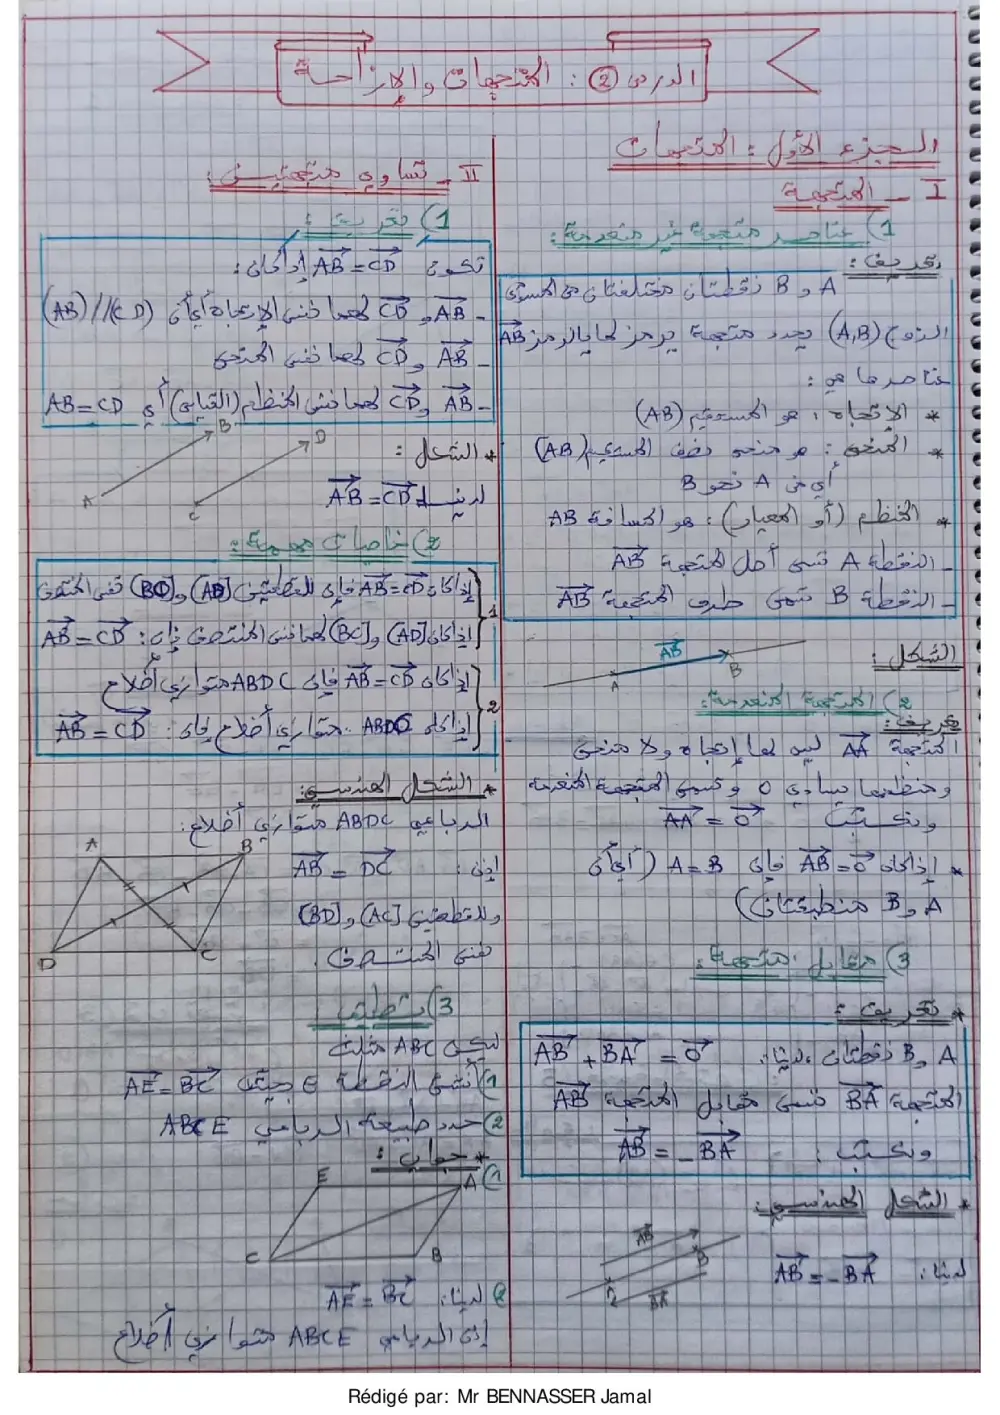 الدرس ② : المتجهات والإزاحة
الجزء الأول : المتجهات
I _ المتجهة
1) عناصر متجهة غير منعدمة :
تعريف :
A و B نقطتان مختلفتان من المستوى
الزوج (A,B) يحدد متجهة يرمز لها بالرمز AB
عناصرها هي :
* الإتجاه : هو المستقيم (AB)
* المنحى : هو منحى نصف المستقيم [AB)
أي من A نحو B
* المنظم (أو المعيار) : هو المسافة AB
_ النقطة A تسمى أصل المتجهة AB
_ النقطة B تسمى طرف المتجهة AB
الشكل :
AB
A B
2) المتجهة المنعدمة :
تعريف :
المتجهة AA ليس لها إتجاه ولا منحى
ومنظمها يساوي 0 وتسمى المتجهة المنعدمة
ونكتب AA = 0
* إذا كان AB = 0 فإن A = B (أي أن
A و B منطبقتان)
3) مقابل متجهة :
* تعريف :
A و B نقطتان ، لدينا : AB + BA = 0
المتجهة BA تسمى مقابل المتجهة AB
ونكتب : AB = _ BA
* الشكل الهندسي :
AB
B
BA
لدينا : AB = _ BA
II _ تساوي متجهتين :
1) تعريف :
تكون AB = CD إذا كان :
_ AB و CD لهما نفس الإتجاه أي أن (AB) // (CD)
_ AB و CD لهما نفس المنحى
_ AB و CD لهما نفس المنظم (القياس) أي AB = CD
* الشكل :
A B C D
لدينا AB = CD
2) خاصيات مهمة :
إذا كان AB = CD فإن للقطعتين [AD] و [BC] نفس المنتصف
إذا كان [AD] و [BC] لهما نفس المنتصف فإن : AB = CD
1
إذا كان AB = CD فإن ABDC متوازي أضلاع
إذا كان ABDC متوازي أضلاع فإن : AB = CD
2
* الشكل الهندسي :
الرباعي ABDC متوازي أضلاع :
A B
D C
إذن : AB = DC
وللقطعتين [AC] و [BD]
نفس المنتصف .
3) تطبيق :
ليكن ABC مثلث
1) أنشئ النقطة E بحيث AE = BC
2) حدد طبيعة الرباعي ABCE
* جواب :
1)
E A
C B
2) لدينا : AE = BC
إذن الرباعي ABCE متوازي أضلاع
Rédigé par: Mr BENNASSER Jamal